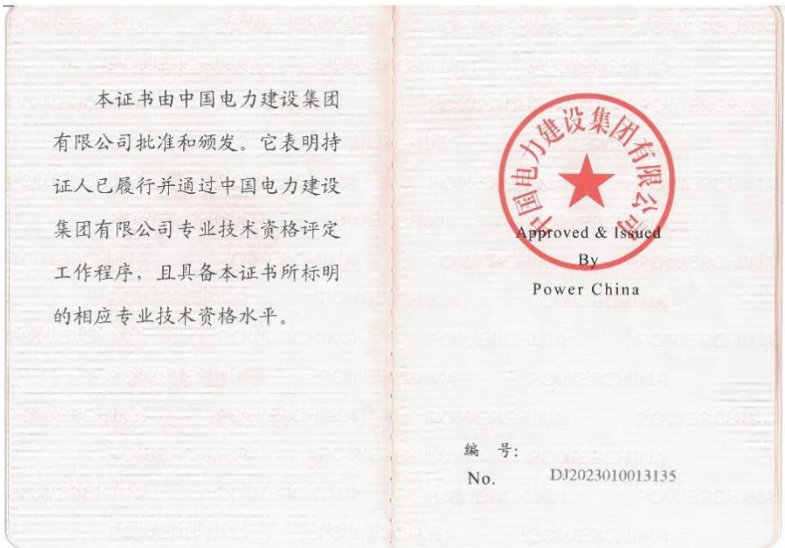 本证书由中国电力建设集团
有限公司批准和颁发。它表明持
证人已履行并通过中国电力建设
集团有限公司专业技术资格评定
工作程序，且具备本证书所标明
的相应专业技术资格水平。
中国电力建设集团有限公司
Approved & Issued
By
Power China
编 号：
No. DJ2023010013135